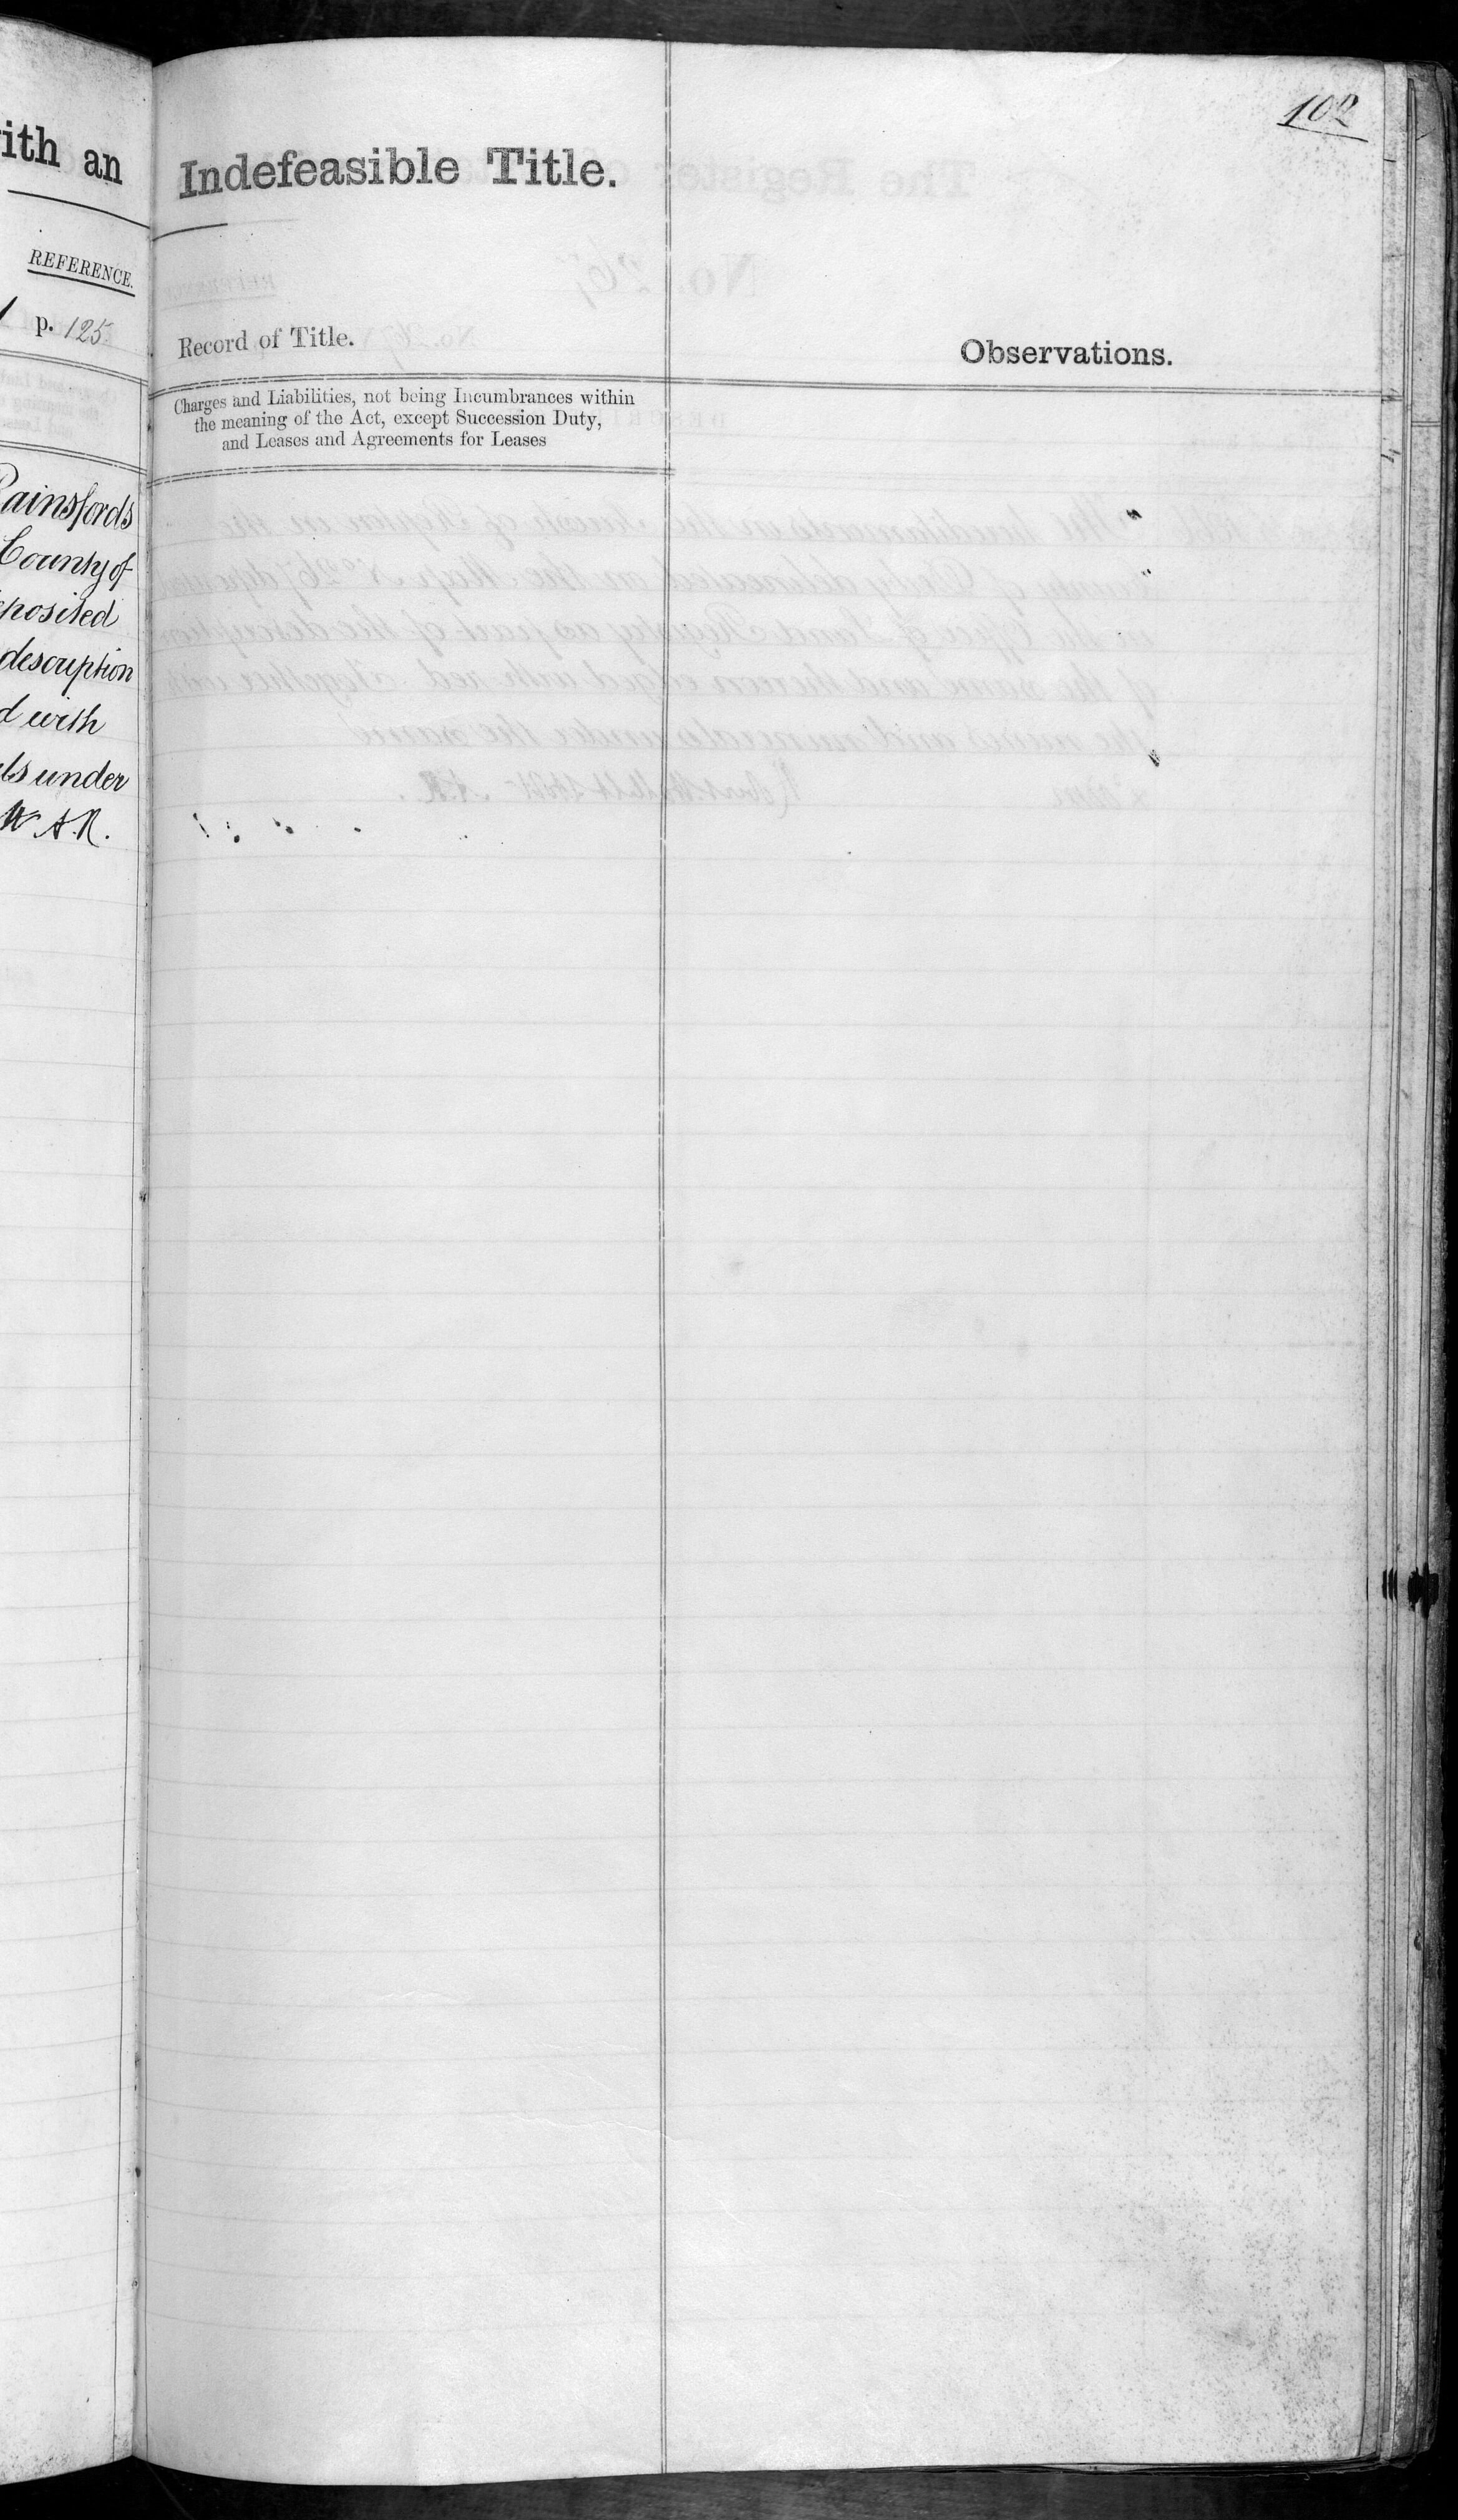 ith an
REFERENCE.
p. 125
ainsfords
County of
posited
description
d with
ls under
A.R.
102
Indefeasible Title.
Record of Title.
Observations.
Charges and Liabilities, not being Incumbrances within
the meaning of the Act, except Succession Duty,
and Leases and Agreements for Leases